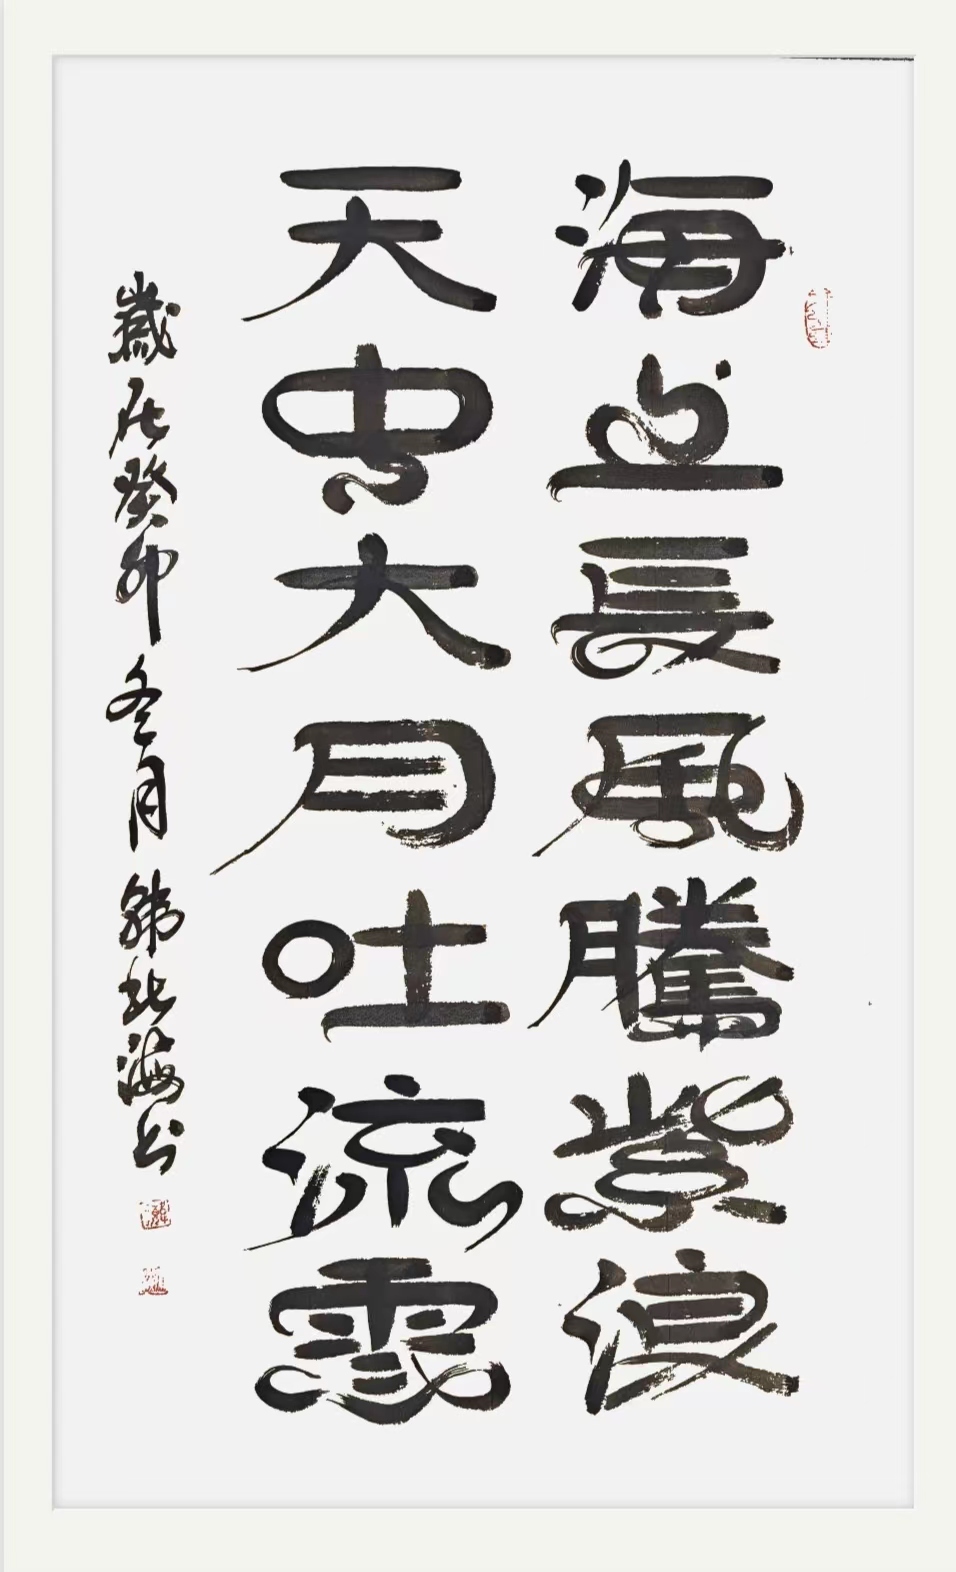 海上長風騰紫浪
天中大月吐流霞
歲在癸卯冬月韓北海书